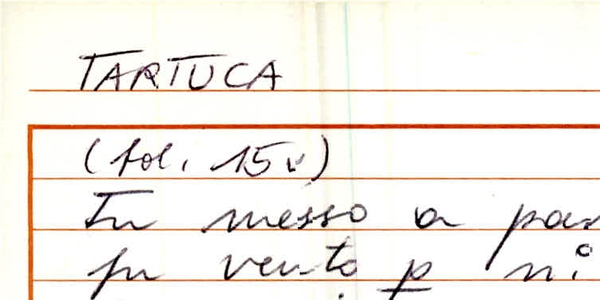 TARTUCA
(fol. 15v)
Fu messo a
fu vento p ni